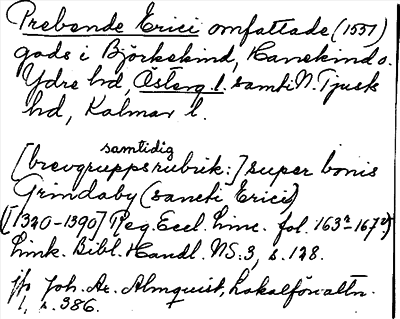 Prebende Erici omfattade (1551)
gods i Björkekind, Hanekind o.
Ydre hd, Österg. l. samt i N. Tjusts
hd, Kalmar l.
samtidig
[brevgruppsrubrik:] super bonis
Grindaby (sancti Erici)
([1320-1390] Reg. Eccl. Linc. fol. 163r-167v)
Link. Bibl. Handl. NS. 3, s. 128.
jfr Joh. Ax. Almquist, Lokalförvaltn.
1, s. 386.